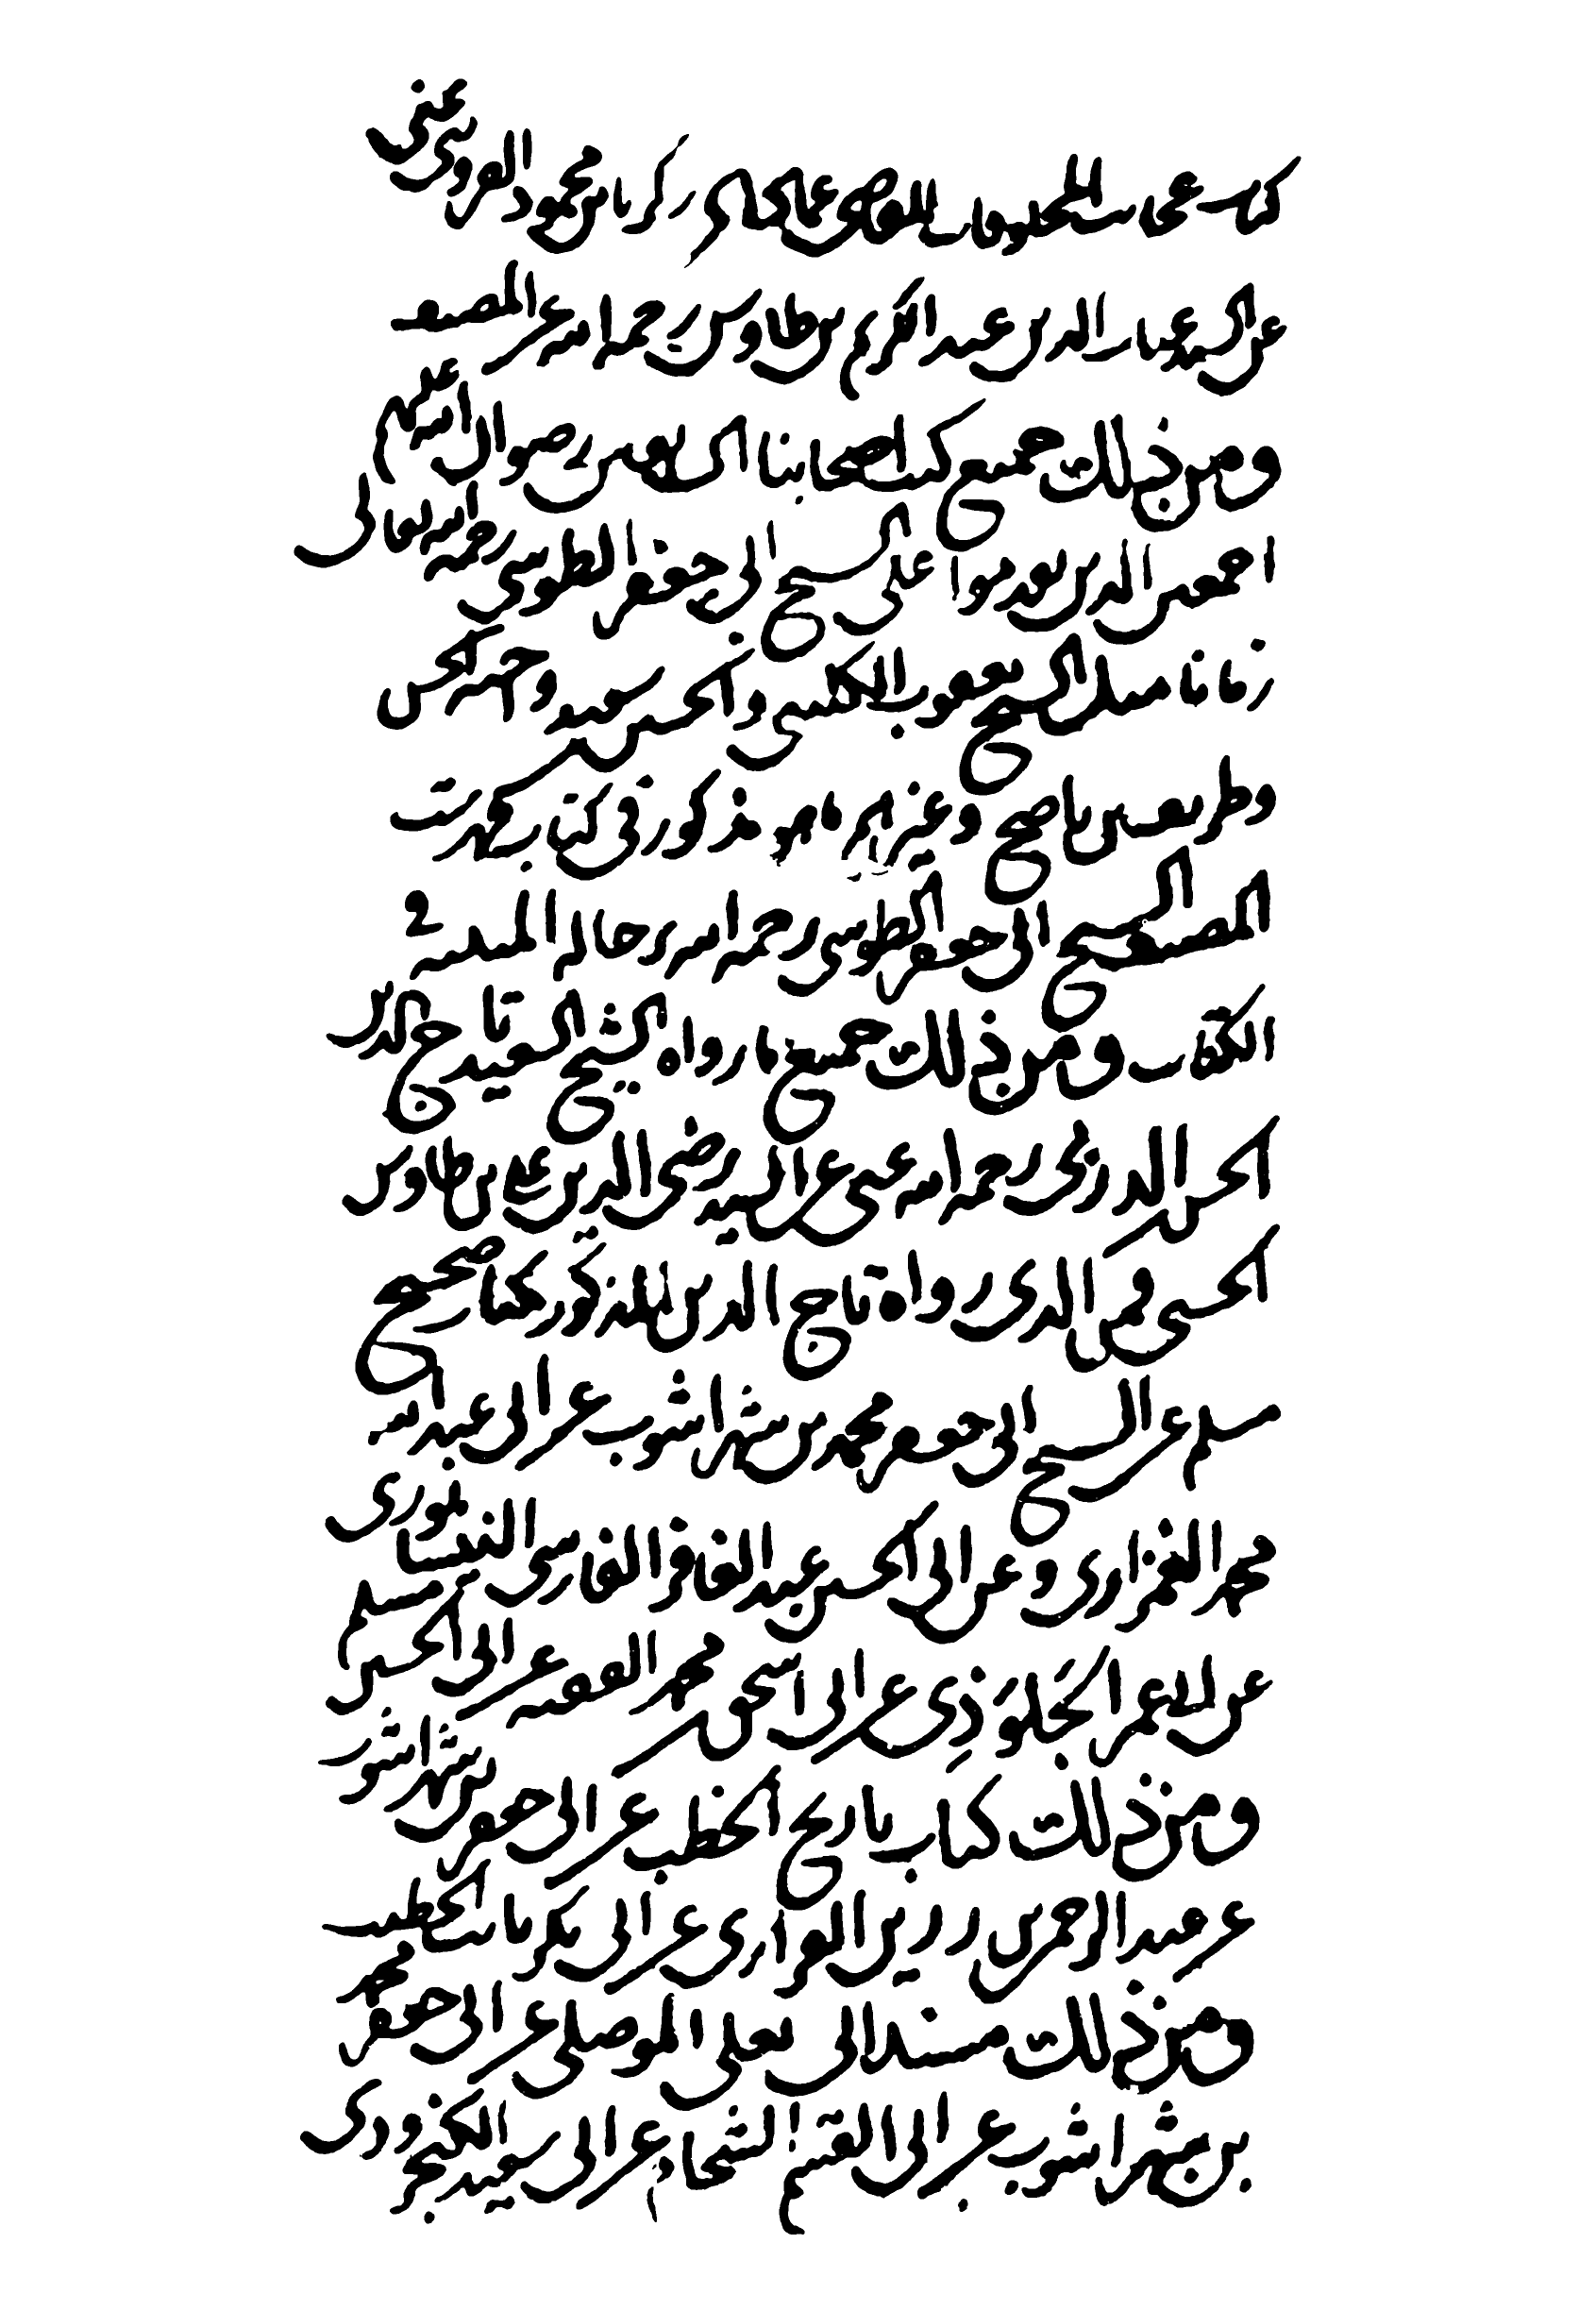 كتاب عجائب المخلوقات للقاضي عماد الدين زكريا بن محمود القزويني
عن السيد غياث الدين عبد الكريم بن طاوس رحمه الله عن المصنف
ومن ذلك جميع كتب اصحابنا السابقين رضوان الله عليهم
اجمعين الذين تقدموا على الشيخ ابي جعفر الطوسي رحمه الله تعالى
زمانا مثل الشيخ يعقوب الكليني والحسين بن سعيد واخيه الحسن
وطريف بن ناصح وغيرهم ما هو مذكور في كتاب فهرست
المصنفين للشيخ ابي جعفر الطوسي رحمه الله برجاله المثبتة في
الكتاب ومن ذلك جميع ما رواه الشيخ السعيد تاج الدين
الحسن الدربي رحمه الله عني عن السيد رضي الدين علي بن طاوس
الحسني فمن الذي رواه تاج الدين المذكور كتاب صحيح
مسلم عن الشيخ ابي جعفر محمد بن شهراشوب عن ابي عبد الله
محمد الفزاري وعن ابي الحسن عبد الغافر الفارسي النيسابوري
عن الجلوذي عن ابي اسحق محمد الفقيه عن ابي الحسين مسلم
ومن ذلك كتاب تاريخ الخطيب عن ابي جعفر بن شهراشوب
عن عبد الرحمن بن زريق القزاز عن ابي بكر ثابت الخطيب
ومن ذلك مسند ابي يعلى الموصلي عن ابي جعفر محمد
بن شهراشوب عن ابي القسم الشحام عن ابي سعيد الكنجرودي